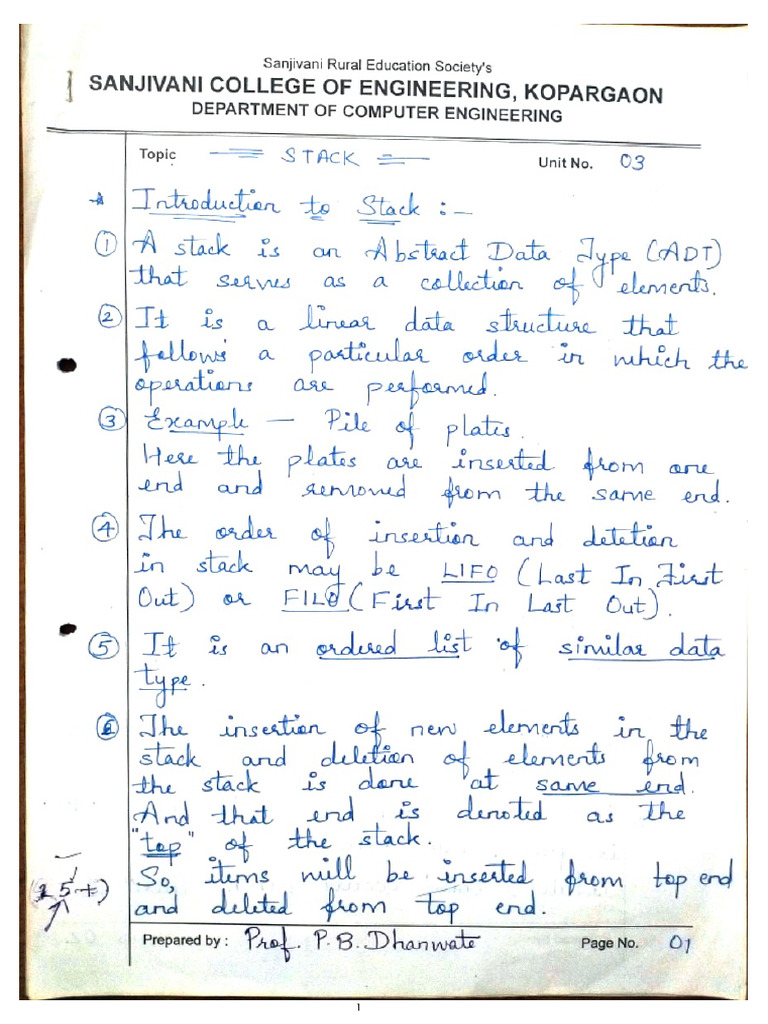 Sanjivani Rural Education Society's
SANJIVANI COLLEGE OF ENGINEERING, KOPARGAON
DEPARTMENT OF COMPUTER ENGINEERING
Topic STACK Unit No. 03
Introduction to Stack :-
① A stack is an Abstract Data Type (ADT)
that serves as a collection of elements.
② It is a linear data structure that
follows a particular order in which the
operations are performed.
③ Example - Pile of plates.
Here the plates are inserted from one
end and removed from the same end.
④ The order of insertion and deletion
in stack may be LIFO (Last In First
Out) or FILO (First In Last Out).
⑤ It is an ordered list of similar data
type.
⑥ The insertion of new elements in the
stack and deletion of elements from
the stack is done at same end.
And that end is denoted as the
"top" of the stack.
So, items will be inserted from top end
and deleted from top end.
Prepared by : Prof. P.B. Dhanwate Page No. 01
1